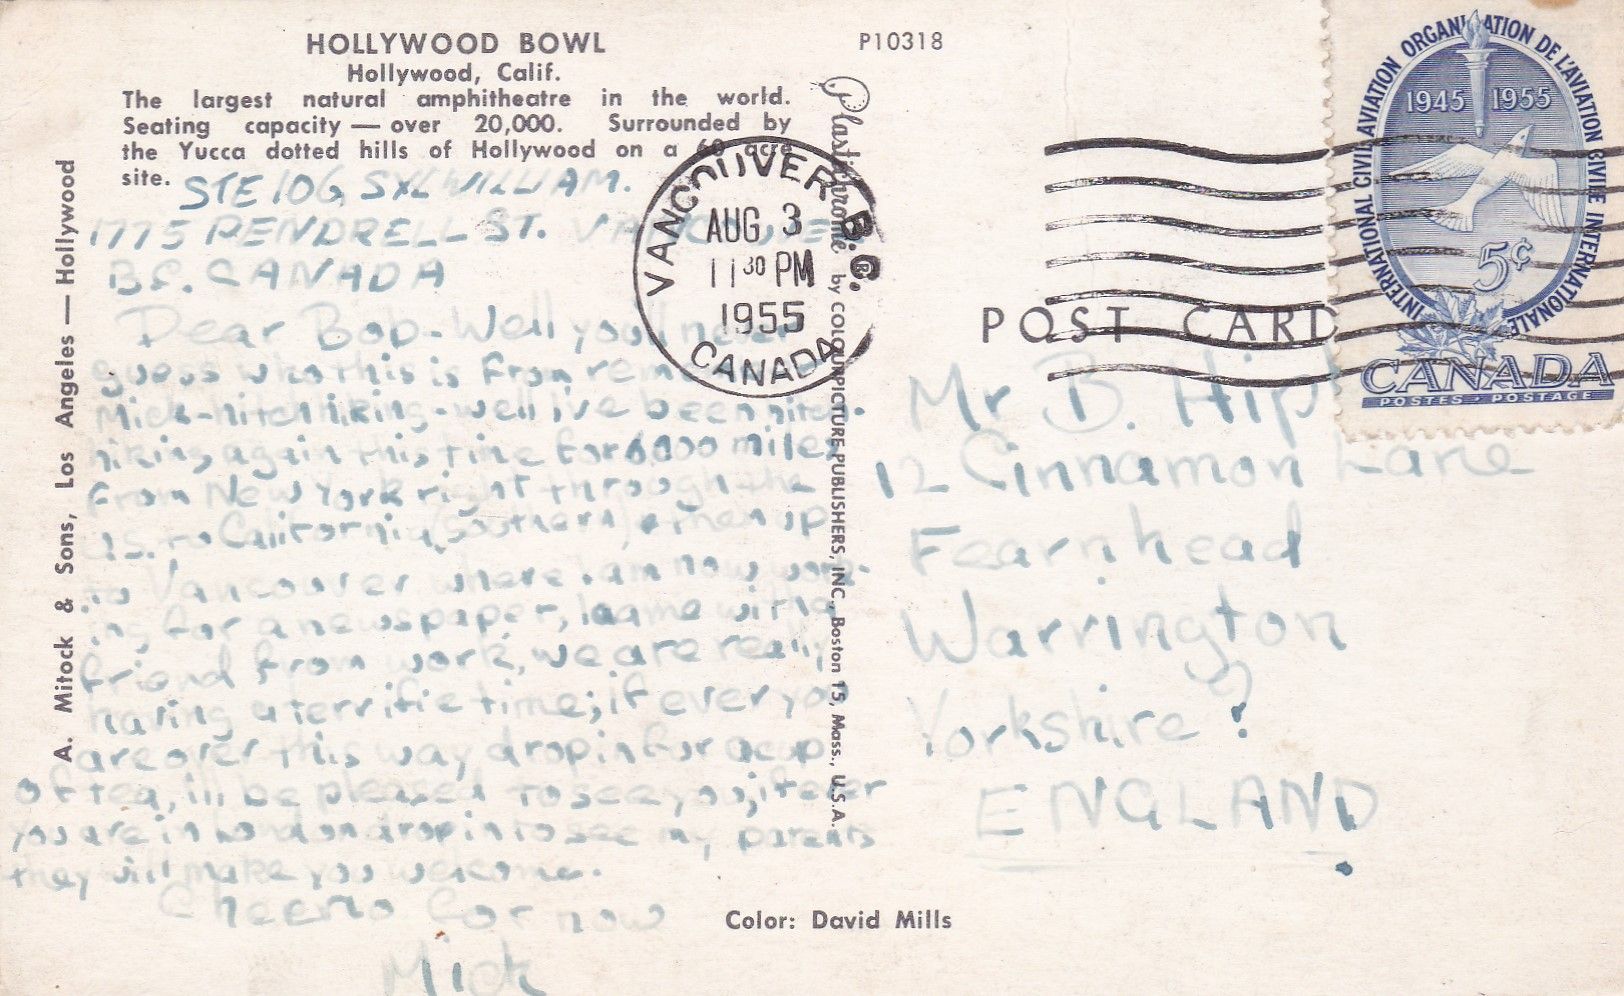 HOLLYWOOD BOWL
Hollywood, Calif.
The largest natural amphitheatre in the world.
Seating capacity — over 20,000. Surrounded by
the Yucca dotted hills of Hollywood on a 60 acre
site.
P10318
A. Mitock & Sons, Los Angeles — Hollywood
Plastichrome ® by COLOURPICTURE PUBLISHERS, INC., Boston 15, Mass., U.S.A.
STE 106, WILLIAM.
1775 PENDRELL ST. VANCOUVER
B.C. CANADA
Dear Bob - Well you'll never
guess who this is from remember
Mick - hitchhiking - well i've been hitch-
hiking again this time for 6,000 miles
from New York right through the
U.S. to California (Southern) & then up
to Vancouver where I am now work-
ing for a newspaper, I came with a
friend from work, we are really
having a terrific time; if ever you
are over this way drop in for a cup
of tea, ill be pleased to see you, if ever
you are in London drop in to see my parents
they will make you welcome.
Cheerio for now
Mick
VANCOUVER B.C.
AUG 3
11 30 PM
1955
CANADA
POST CARD
INTERNATIONAL CIVIL AVIATION ORGANIZATION DE L'AVIATION CIVILE INTERNATIONALE
1945 1955
5¢
CANADA
POSTES · POSTAGE
Mr B.
12 Cinnamon Lane
Fearnhead
Warrington
Yorkshire ?
ENGLAND
Color: David Mills